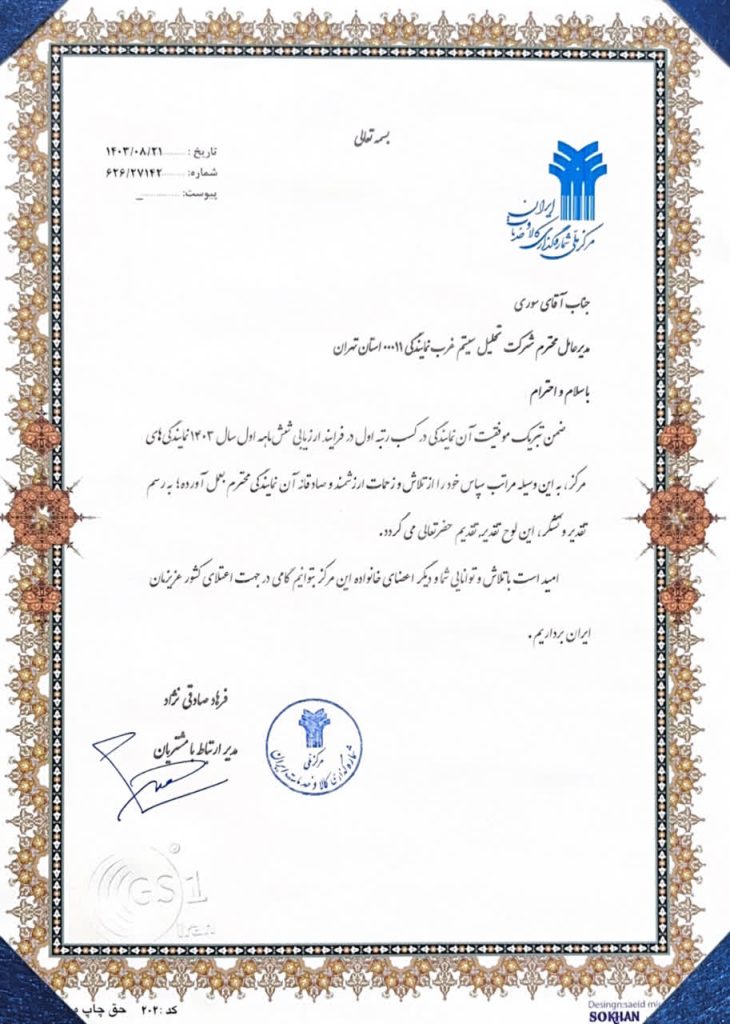 بسمه تعالی
تاریخ : ۱۴۰۳/۰۸/۲۱
شماره: ۶۲۶/۲۷۱۴۲
پیوست: _
مرکز ملی شماره‌گذاری کالا و خدمات ایران
جناب آقای سوری
مدیرعامل محترم شرکت تحلیل سیستم غرب نمایندگی ۰۰۰۰۱۱ استان تهران
باسلام و احترام
ضمن تبریک موفقیت آن نمایندگی در کسب رتبه اول در فرایند ارزیابی شش ماهه اول سال ۱۴۰۳ نمایندگی‌های
مرکز، به این وسیله مراتب سپاس خود را از تلاش و زحمات ارزشمند و صادقانه آن نمایندگی محترم بعمل آورده؛ به رسم
تقدیر و تشکر، این لوح تقدیر، تقدیم حضرتعالی می گردد.
امید است با تلاش و توانایی شما و دیگر اعضای خانواده این مرکز بتوانیم گامی در جهت اعتلای کشور عزیزمان
ایران برداریم.
فرهاد صادقی نژاد
مدیر ارتباط با مشتریان
مرکز ملی
شماره‌گذاری کالا و خدمات ایران
GS1
Iran
کد : ۲۰۲ حق چاپ
Desingn:saeid
SOKHAN